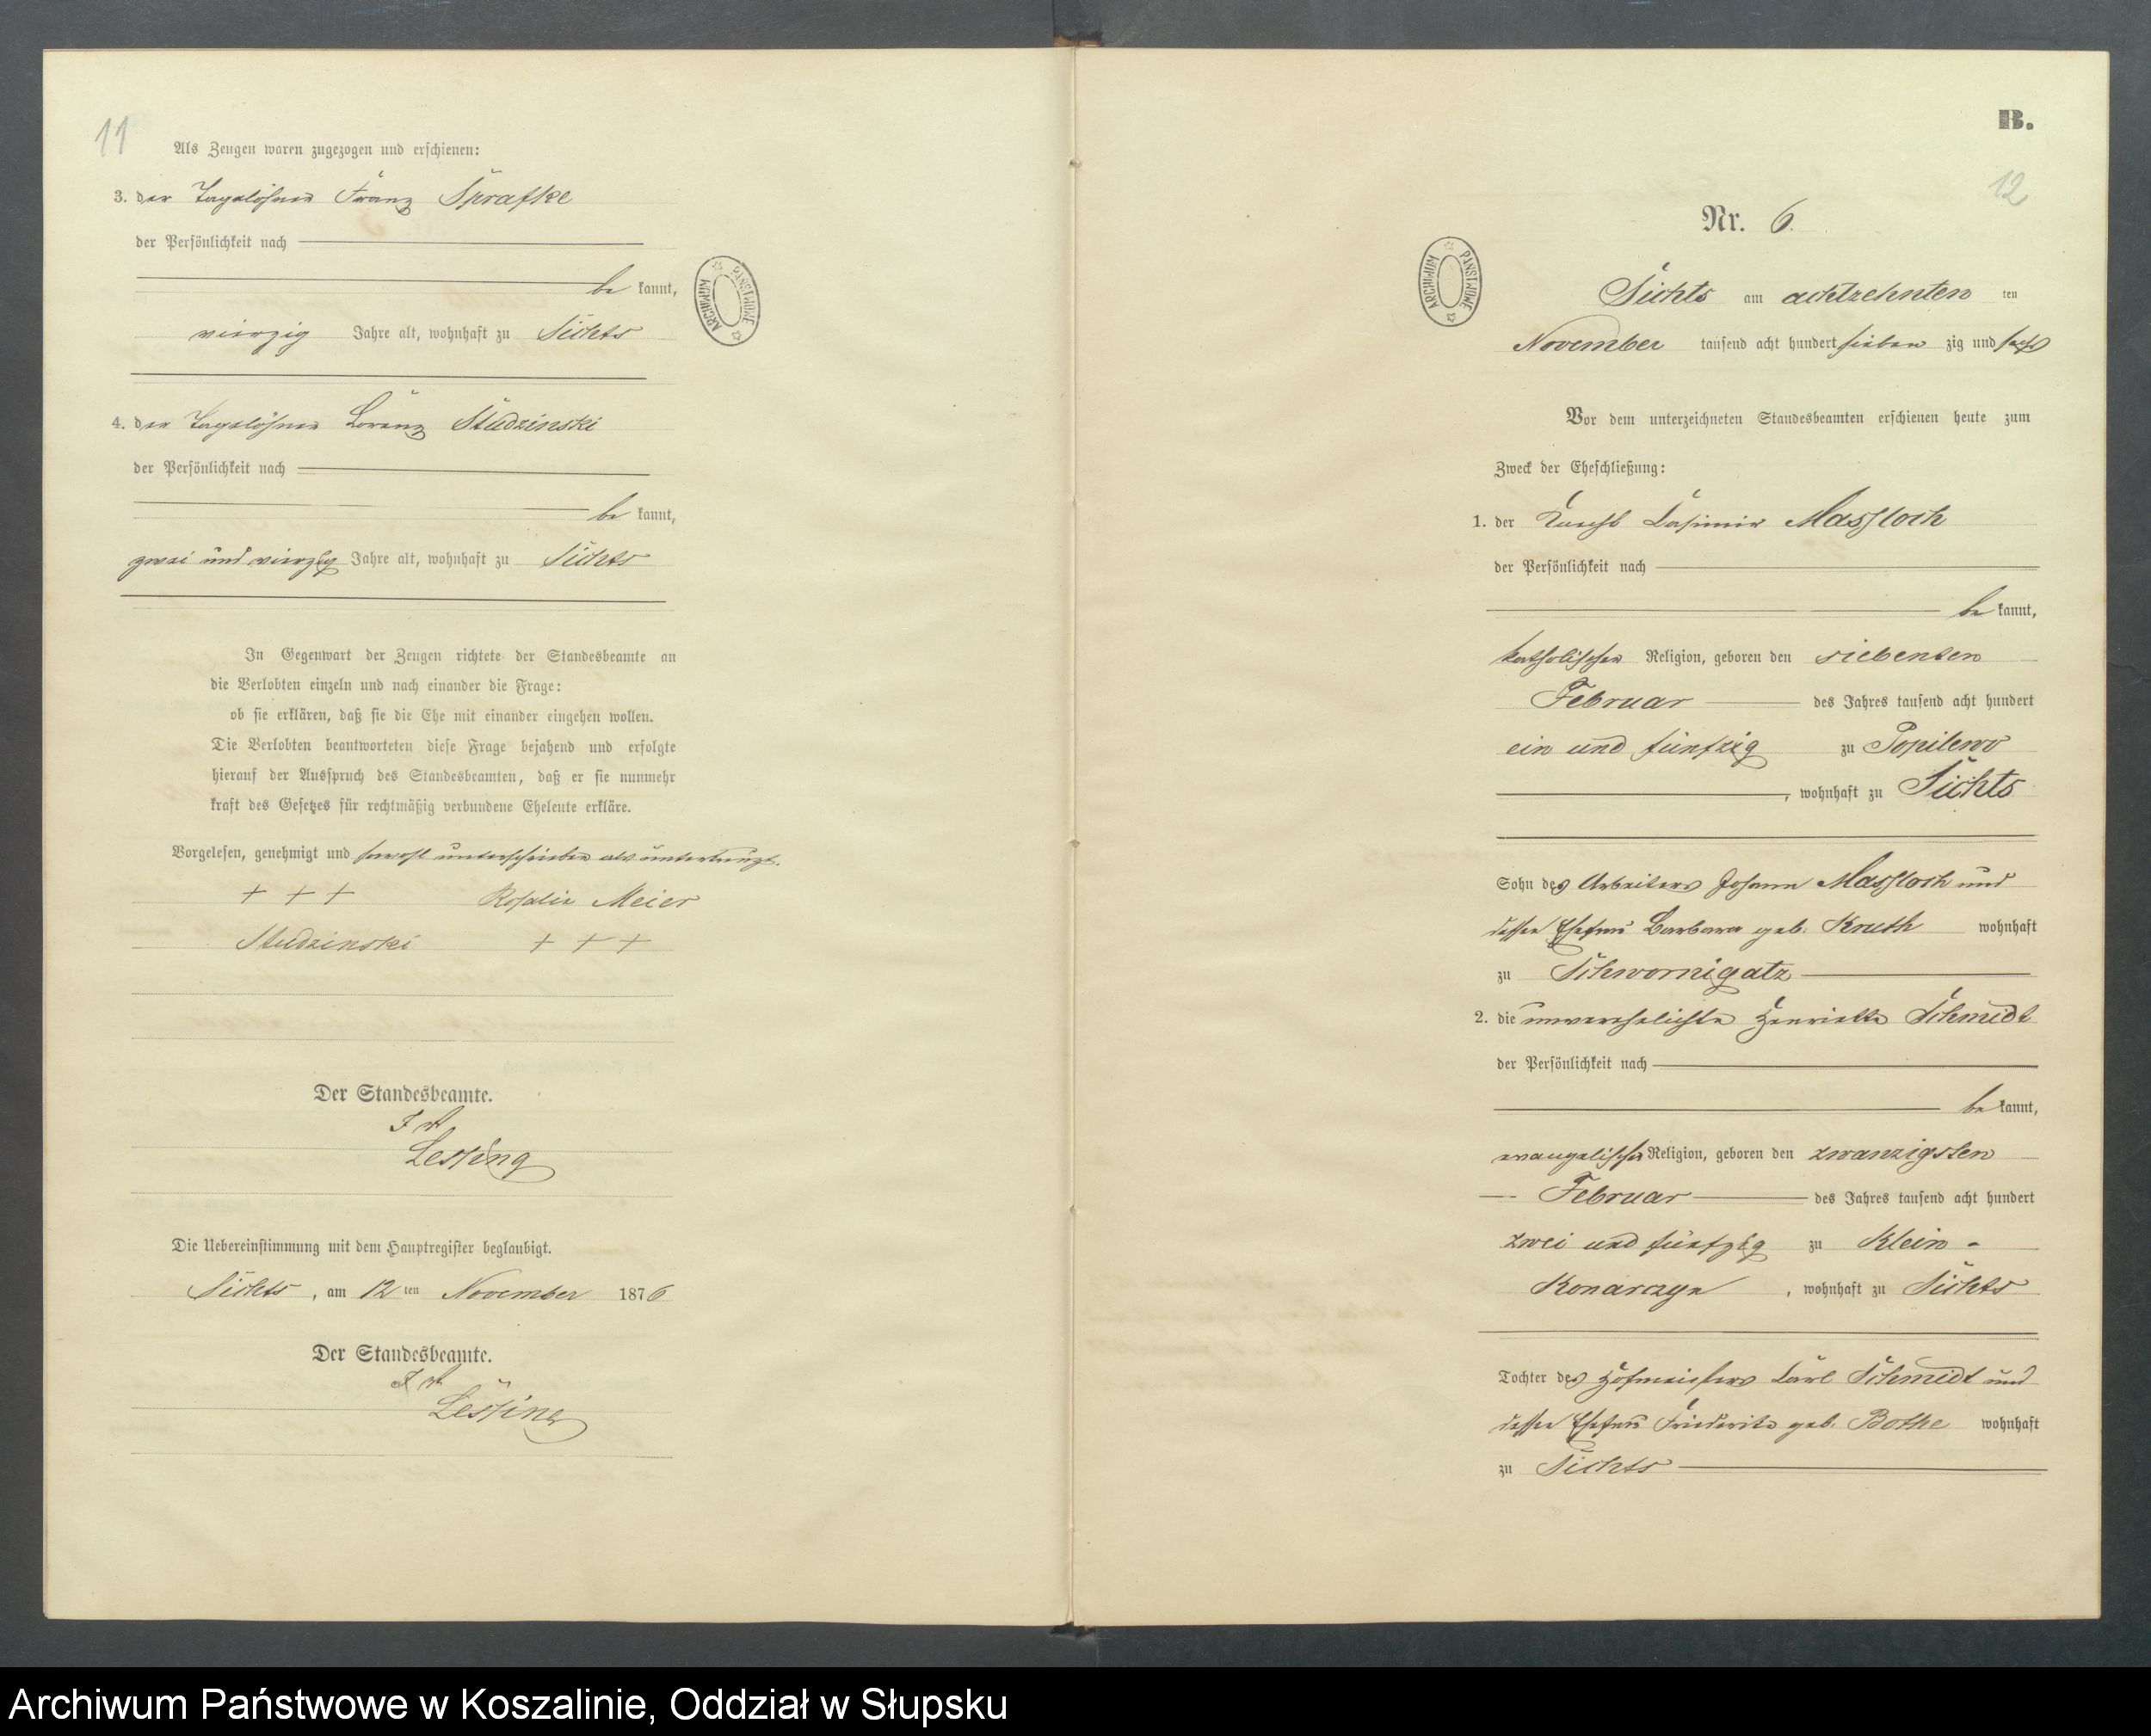 11
Als Zeugen waren zugezogen und erschienen:
3. der Tagelöhner Franz Sprafke
der Persönlichkeit nach
be kannt,
vierzig Jahre alt, wohnhaft zu Sichts
4. der Tagelöhner Lorenz Studzinski
der Persönlichkeit nach
be kannt,
zwei und vierzig Jahre alt, wohnhaft zu Sichts
In Gegenwart der Zeugen richtete der Standesbeamte an
die Verlobten einzeln und nach einander die Frage:
ob sie erklären, daß sie die Ehe mit einander eingehen wollen.
Die Verlobten beantworteten diese Frage bejahend und erfolgte
hierauf der Ausspruch des Standesbeamten, daß er sie nunmehr
kraft des Gesetzes für rechtmäßig verbundene Eheleute erkläre.
Vorgelesen, genehmigt und sowohl unterschrieben als unterkreuzt.
+ + + Rosalie Meier
Studzinski + + +
Der Standesbeamte.
Lessing
Die Uebereinstimmung mit dem Hauptregister beglaubigt.
Sichts, am 12 ten November 1876
Der Standesbeamte.
Lessing
ARCHIWUM PAŃSTWOWE
B.
12
Nr. 6.
ARCHIWUM PAŃSTWOWE
Sichts am achtzehnten ten
November tausend acht hundert sieben zig und sechs
Vor dem unterzeichneten Standesbeamten erschienen heute zum
Zweck der Eheschließung:
1. der Knecht Casimir Massloch
der Persönlichkeit nach
be kannt,
katholischer Religion, geboren den siebenten
Februar des Jahres tausend acht hundert
ein und fünfzig zu Popilewo
, wohnhaft zu Sichts
Sohn des Arbeiters Johann Massloch und
dessen Ehefrau Barbara geb. Knuth wohnhaft
zu Schwornigatz
2. die unverehelichte Henriette Schmidt
der Persönlichkeit nach
be kannt,
evangelischer Religion, geboren den zwanzigsten
Februar des Jahres tausend acht hundert
zwei und fünfzig zu Klein-
Konarczyn, wohnhaft zu Sichts
Tochter des Hofmeisters Carl Schmidt und
dessen Ehefrau Friederike geb. Bothe wohnhaft
zu Sichts
Archiwum Państwowe w Koszalinie, Oddział w Słupsku